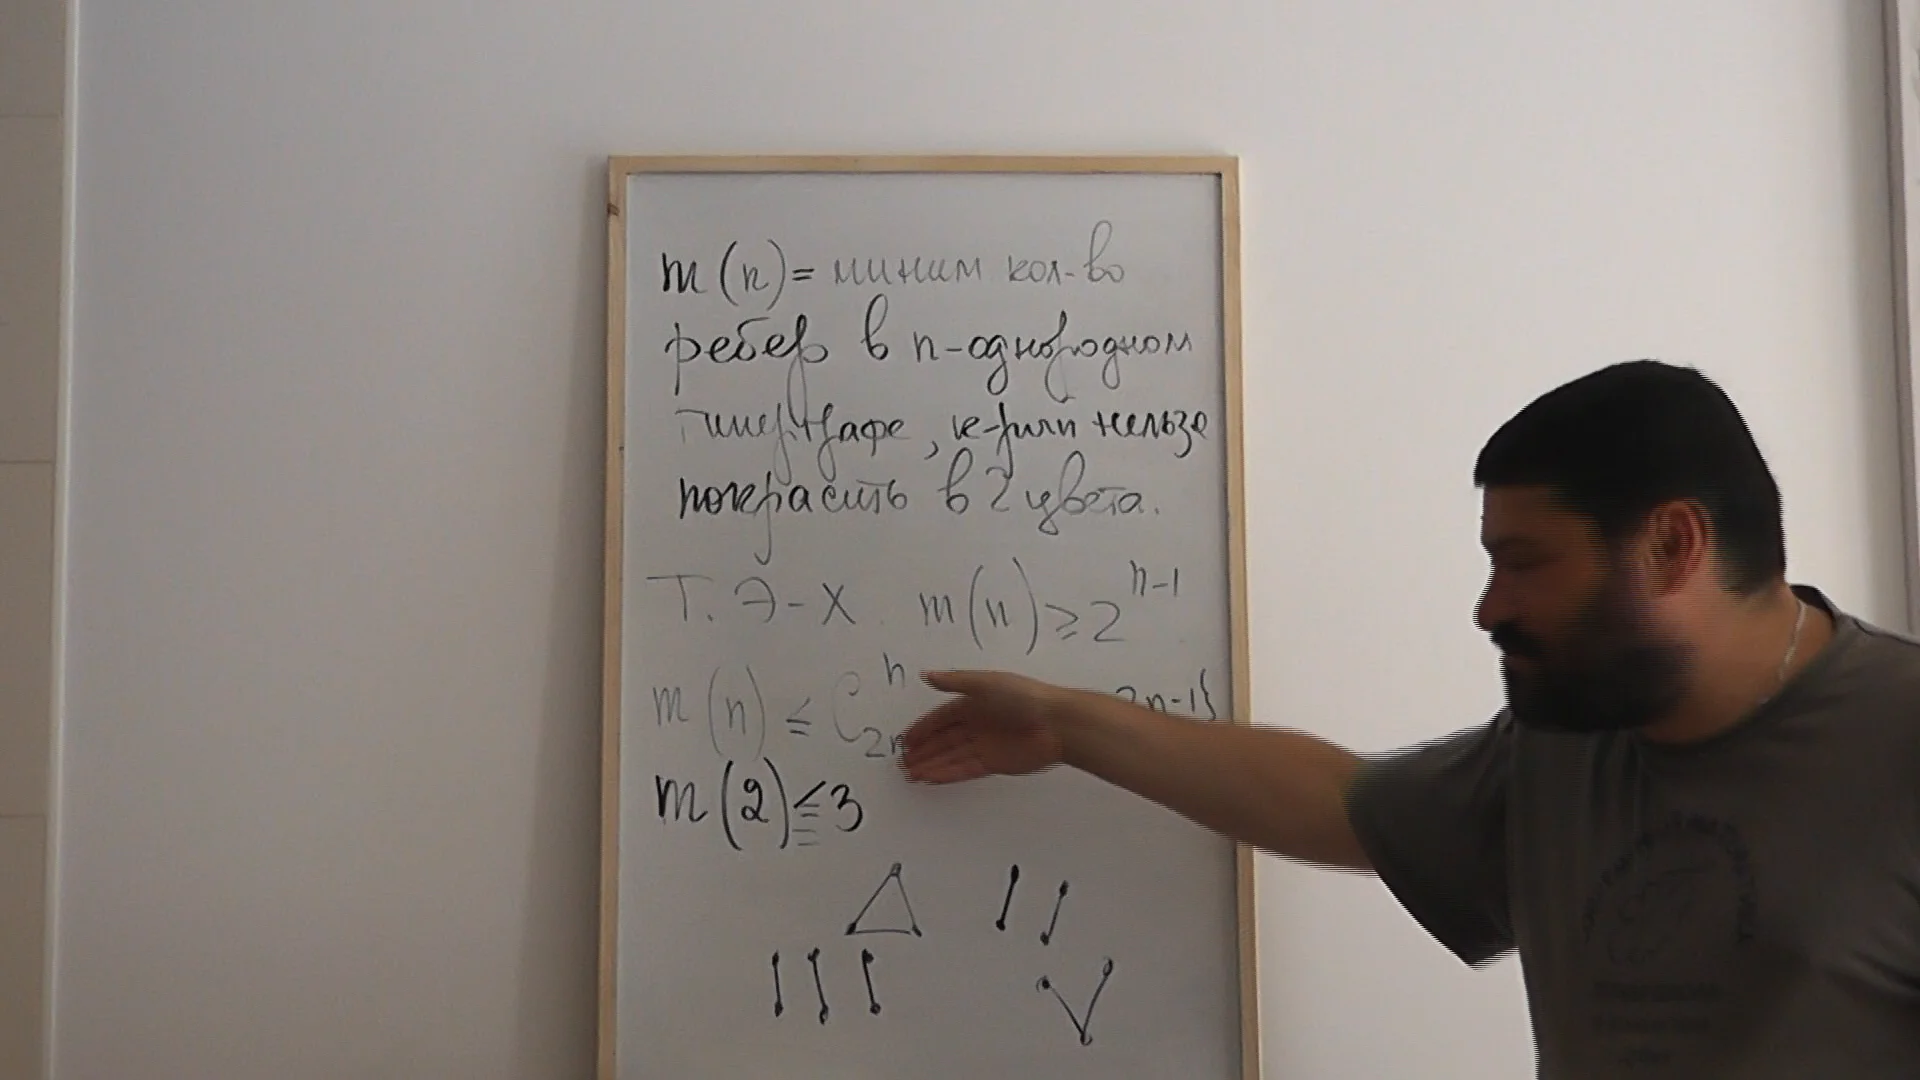 m(n)= миним кол-во
ребер в n-однородном
гиперграфе, к-рый нельзя
покрасить в 2 цвета.
Т. Э-Х. m(n) ≥ 2^{n-1}
m(n) ≤ C_{2n}^{n} 2n-1}
m(2) ≤ 3